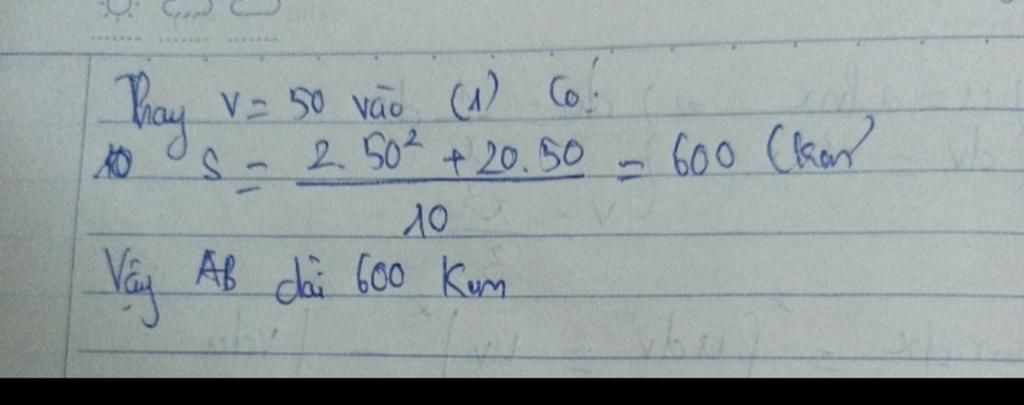 Thay V = 50 vào (1) Có:
S = \frac{2.50² + 20.50}{10} = 600 (km)
Vậy AB dài 600 Km